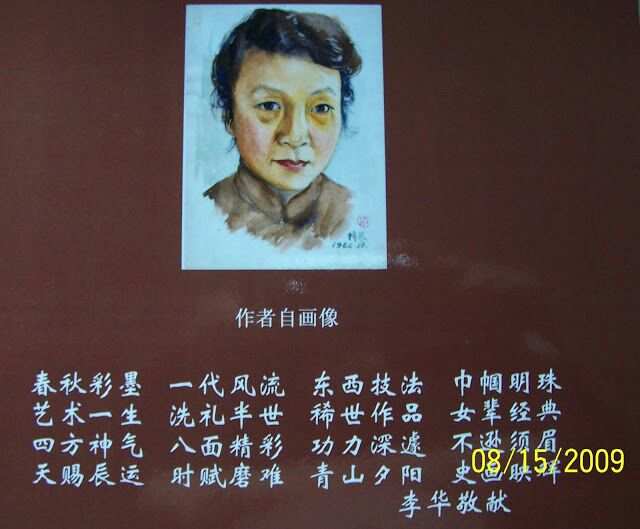 1966.10.
作者自画像
春秋彩墨 一代风流 东西技法 巾帼明珠
艺术一生 洗礼半世 稀世作品 女辈经典
四方神气 八面精彩 功力深遽 不逊须眉
天赐辰运 时赋磨难 青山夕阳 史画映辉
08/15/2009
李华敬献